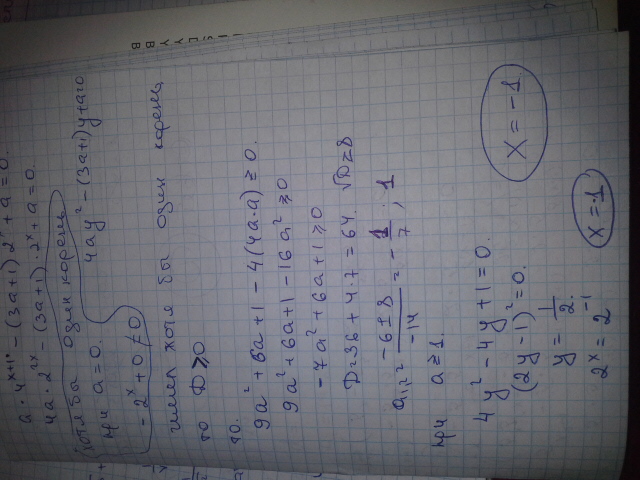 a·4^(x+1) - (3a+1)·2^x + a = 0.
4a·2^(2x) - (3a+1)·2^x + a = 0.
хотя бы один корень
при a=0.
4ay² - (3a+1)y + a=0
-2^x + 0 ≠ 0
имел хотя бы один корень,
то D ≥ 0
9a² + 6a + 1 - 4(4a·a) ≥ 0.
9a² + 6a + 1 - 16a² ≥ 0
-7a² + 6a + 1 ≥ 0
D = 36 + 4·7 = 64. √D = 8
a₁,₂ = (-6 ± 8)/(-14) = -1/7 ; 1
при a ≥ 1.
4y² - 4y + 1 = 0.
(2y - 1)² = 0.
y = 1/2.
2^x = 2^(-1)
x = -1
x = -1